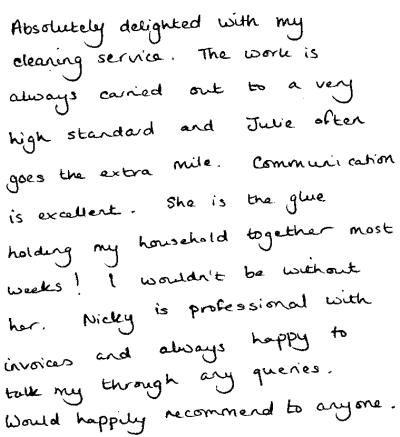 Absolutely delighted with my
cleaning service. The work is
always carried out to a very
high standard and Julie often
goes the extra mile. Communication
is excellent. She is the glue
holding my household together most
weeks! I wouldn't be without
her. Nicky is professional with
invoices and always happy to
talk my through any queries.
Would happily recommend to anyone.